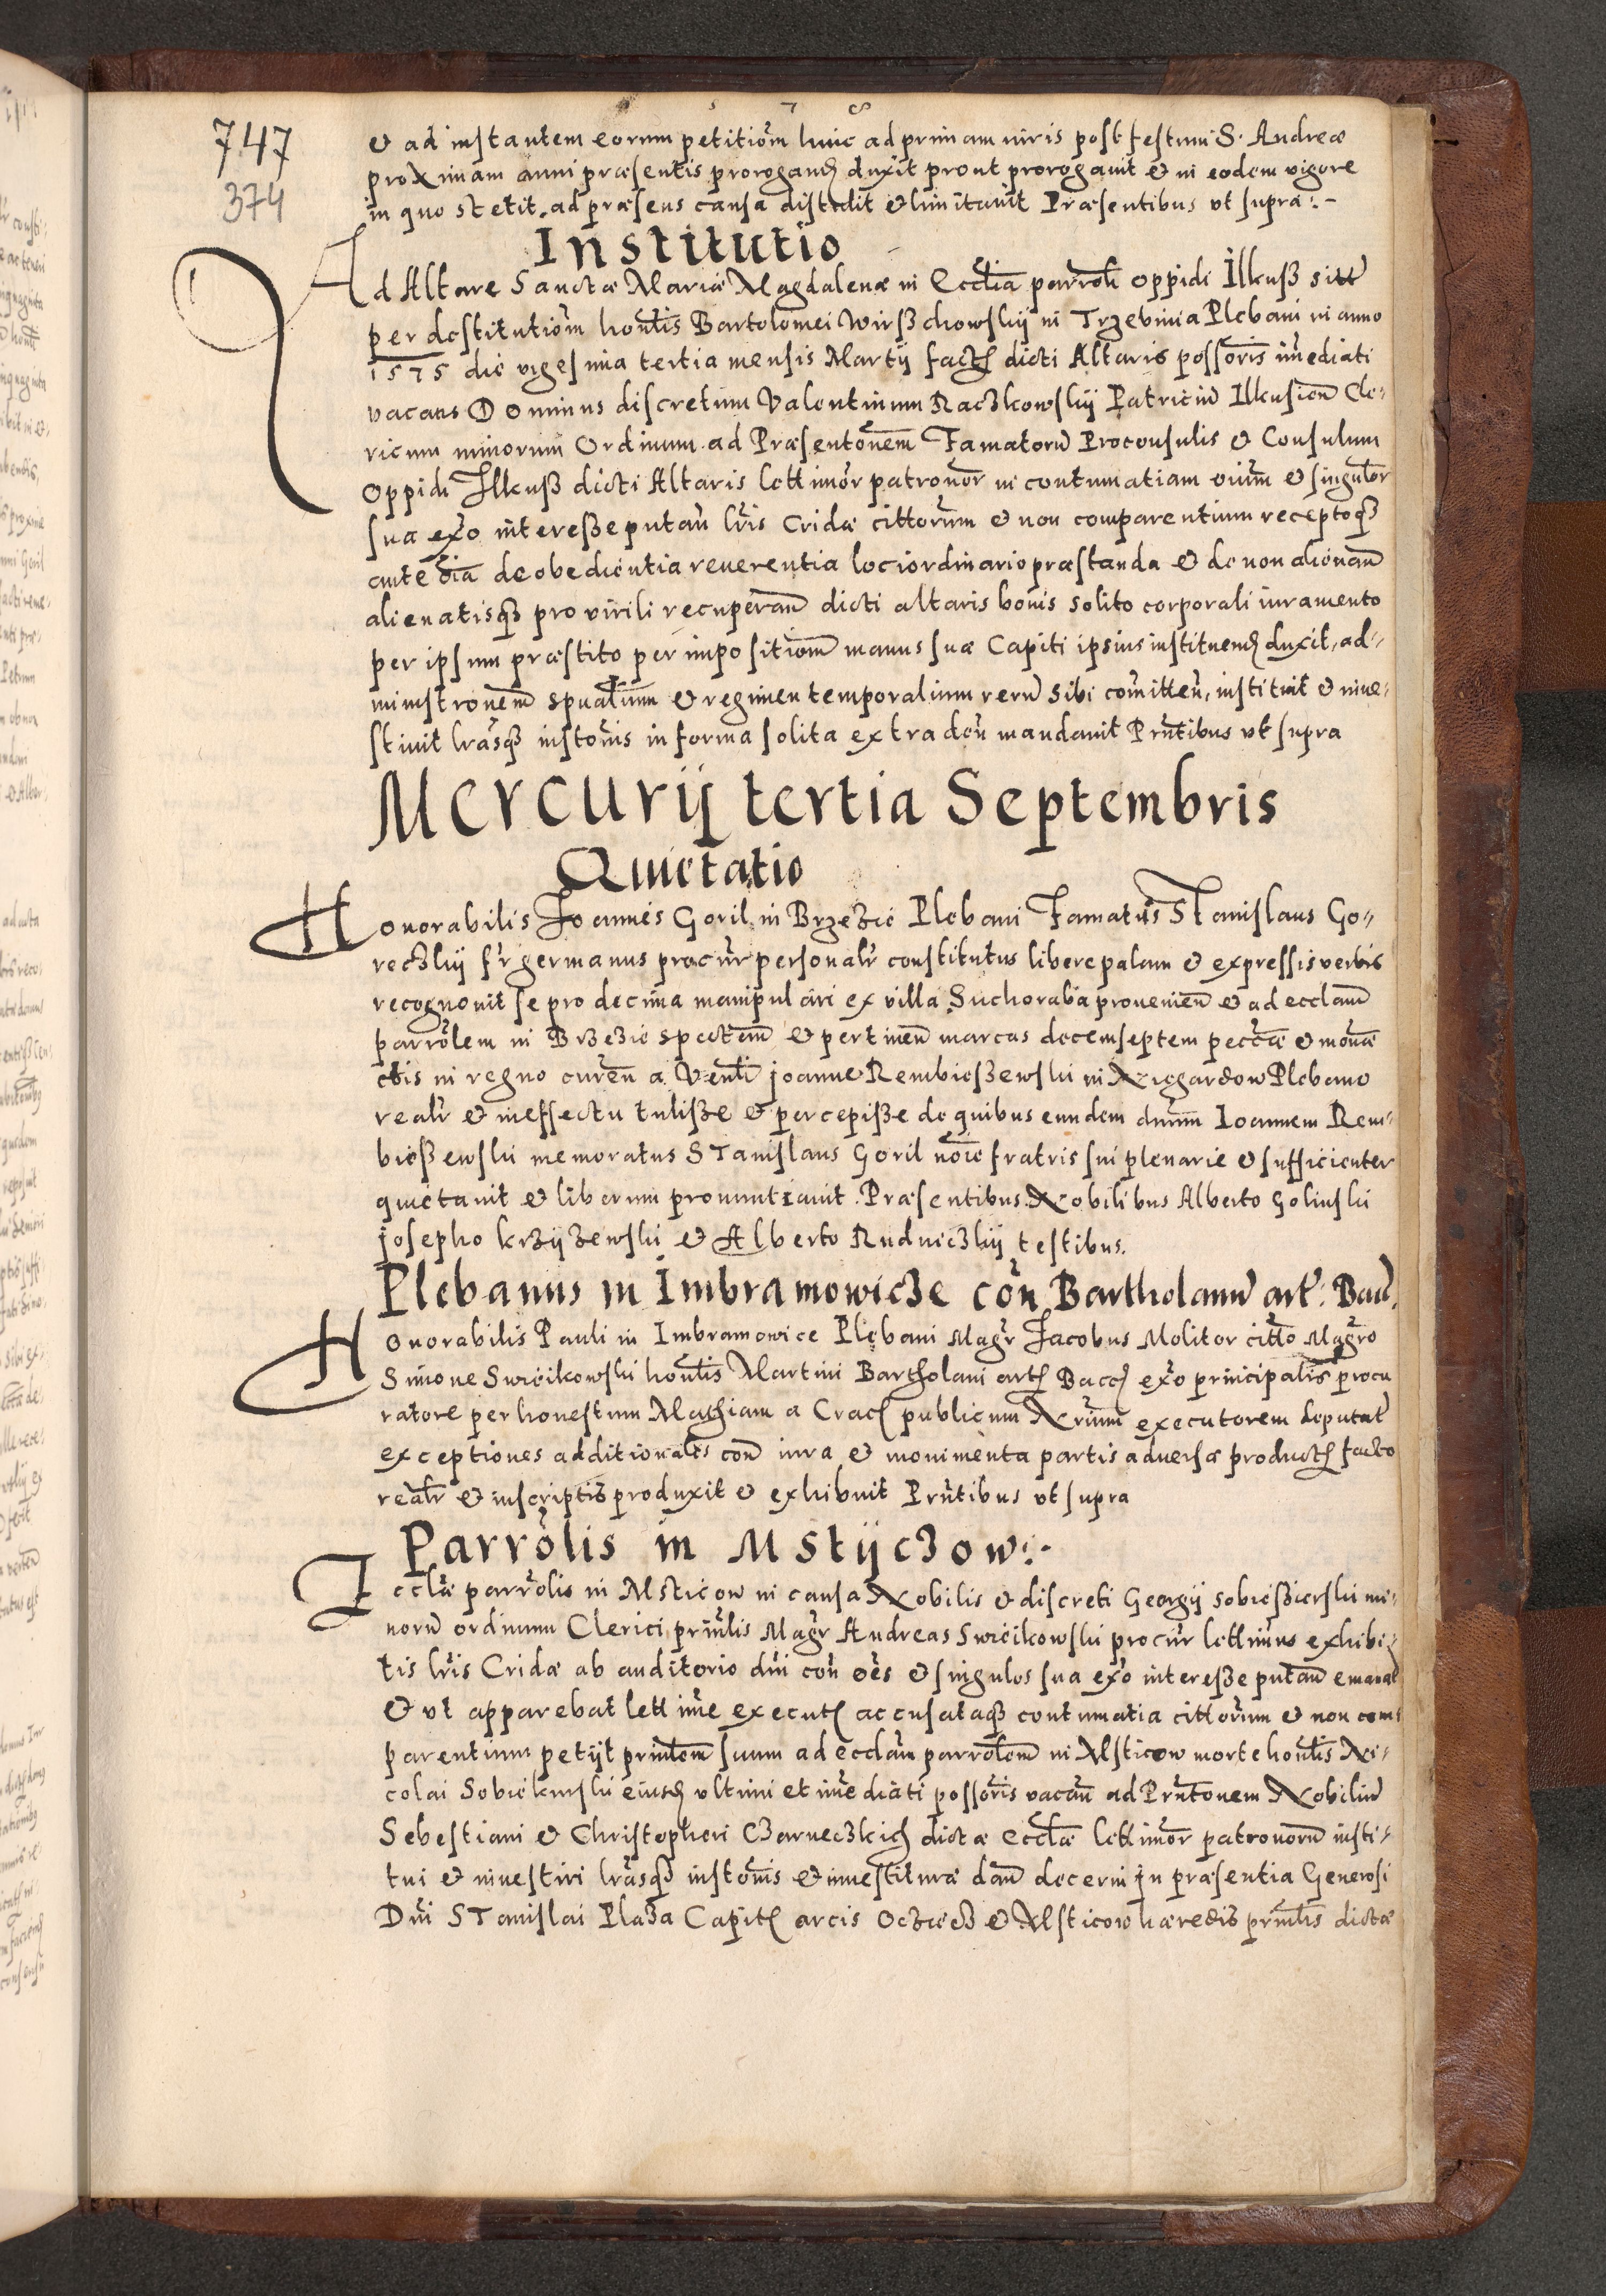 747
374
et ad instantem eorum petitiom huic ad primam iuris post festum S. Andreæ
proximam anni præsentis prorogand duxit prout prorogauit et in eodem vigore
in quo stetit ad præsens causa distulit et limitauit Præsentibus vt supra:-
Institutio
Ad Altare Sanctæ Mariæ Magdalenæ in Ecclia parrohli oppidi Ilkuß sittu
per destitutiom honlis Bartolomei Wirßchowskij in Trzebinia Plebani in anno
1575 die vigesima tertia mensis Martij fact dicti Altaris possoris imediati
vacans Dominus discretum Valentinum Raczkowskij Patriciu Ilkusien Cle-
ricum minorum Ordinum ad Præsentonem Famatoru Proconsulis et Consulum
Oppidi Ilkuß dicti Altaris lettimor patronor in contumatiam oium et singulor
sua exo intereße putan lris Cridæ cittorum et non comparentium receptoq3
ante oia de obedientia reuerentia loci ordinario præstanda et de non alienan
alienatisq3 pro virili recuperan dicti altaris bonis solito corporali iuramento
per ipsum præstito per impositiom manus suæ Capiti ipsius instituend duxit, ad-
ministronem spualium et regimen temporalium reru sibi comitten, instituit et inue-
stiuit lrasq3 instonis in forma solita extraden mandauit Pntibus vt supra
Mercurij tertia Septembris
Quietatio
Honorabilis Joannis Goril in Brzezie Plebani Famatus Stanislaus Go-
reczkij fr germanus procur personalr constitutus libere palam et expressis verbis
recognouit se pro decima manipulari ex villa Suchoraba prouenien et ad ecclam
parrolem in Brzezie spectan et pertinen marcas decemseptem pecciæ et monæ
ctis in regno curen a Venli Joanne Rembießewski in Niegardow Plebano
realr et in effectu tuliße et percepiße de quibus eundem dnum Ioannem Rem-
bießewski memoratus Stanislaus Goril noie fratris sui plenarie et sufficienter
quietauit et liberum pronuntiauit. Præsentibus Nobilibus Alberto Golinski
Josepho krzijzewski et Alberto Rudniczkij testibus.
Plebanus in Imbramowicze con Bartholanu art. Bacc.
Honorabilis Pauli in Imbramowice Plebani Magr Jacobus Molitor citto Magro
Simone Swiecikowski honlis Martini Bartholani art Bacc exo principalis procu
ratore per honestum Mathiam a Crac publicum Nrium executorem deputat
exceptiones additionales con iura et monimenta partis aduersæ product facto
realr et in scriptis produxit et exhibuit Pntibus vt supra
Parrolis in Mstijczow:-
Ecclæ parrolis in Msticow in causa Nobilis et discreti Georgij Sobießierski mi-
noru ordinum Clerici prinlis Magr Andreas Swiecikowski procur lettimus exhibi-
tis lris Cridæ ab auditorio dni con oes et singulos sua exo intereße putan emanat
et vt apparebat lettime execut accusataq3 contumatia cittorum et non com-
parentium petijt prinlem suum ad ecclam parrolem in Msticow morte honlis Ni-
colai Sobiekurski eiusd vltimi et imediati possoris vacan ad Pntonem Nobiliu
Sebestiani et Christopheri Czarneczkich dictæ Ecclæ lettimor patronoru insti-
tui et inuestiri lrasq3 instonis et inuestituræ dan decerni in præsentia Generosi
Dni Stanislai Plaza Capit arcis Oczwiecz et Msticow hæredis prinlis dictæ